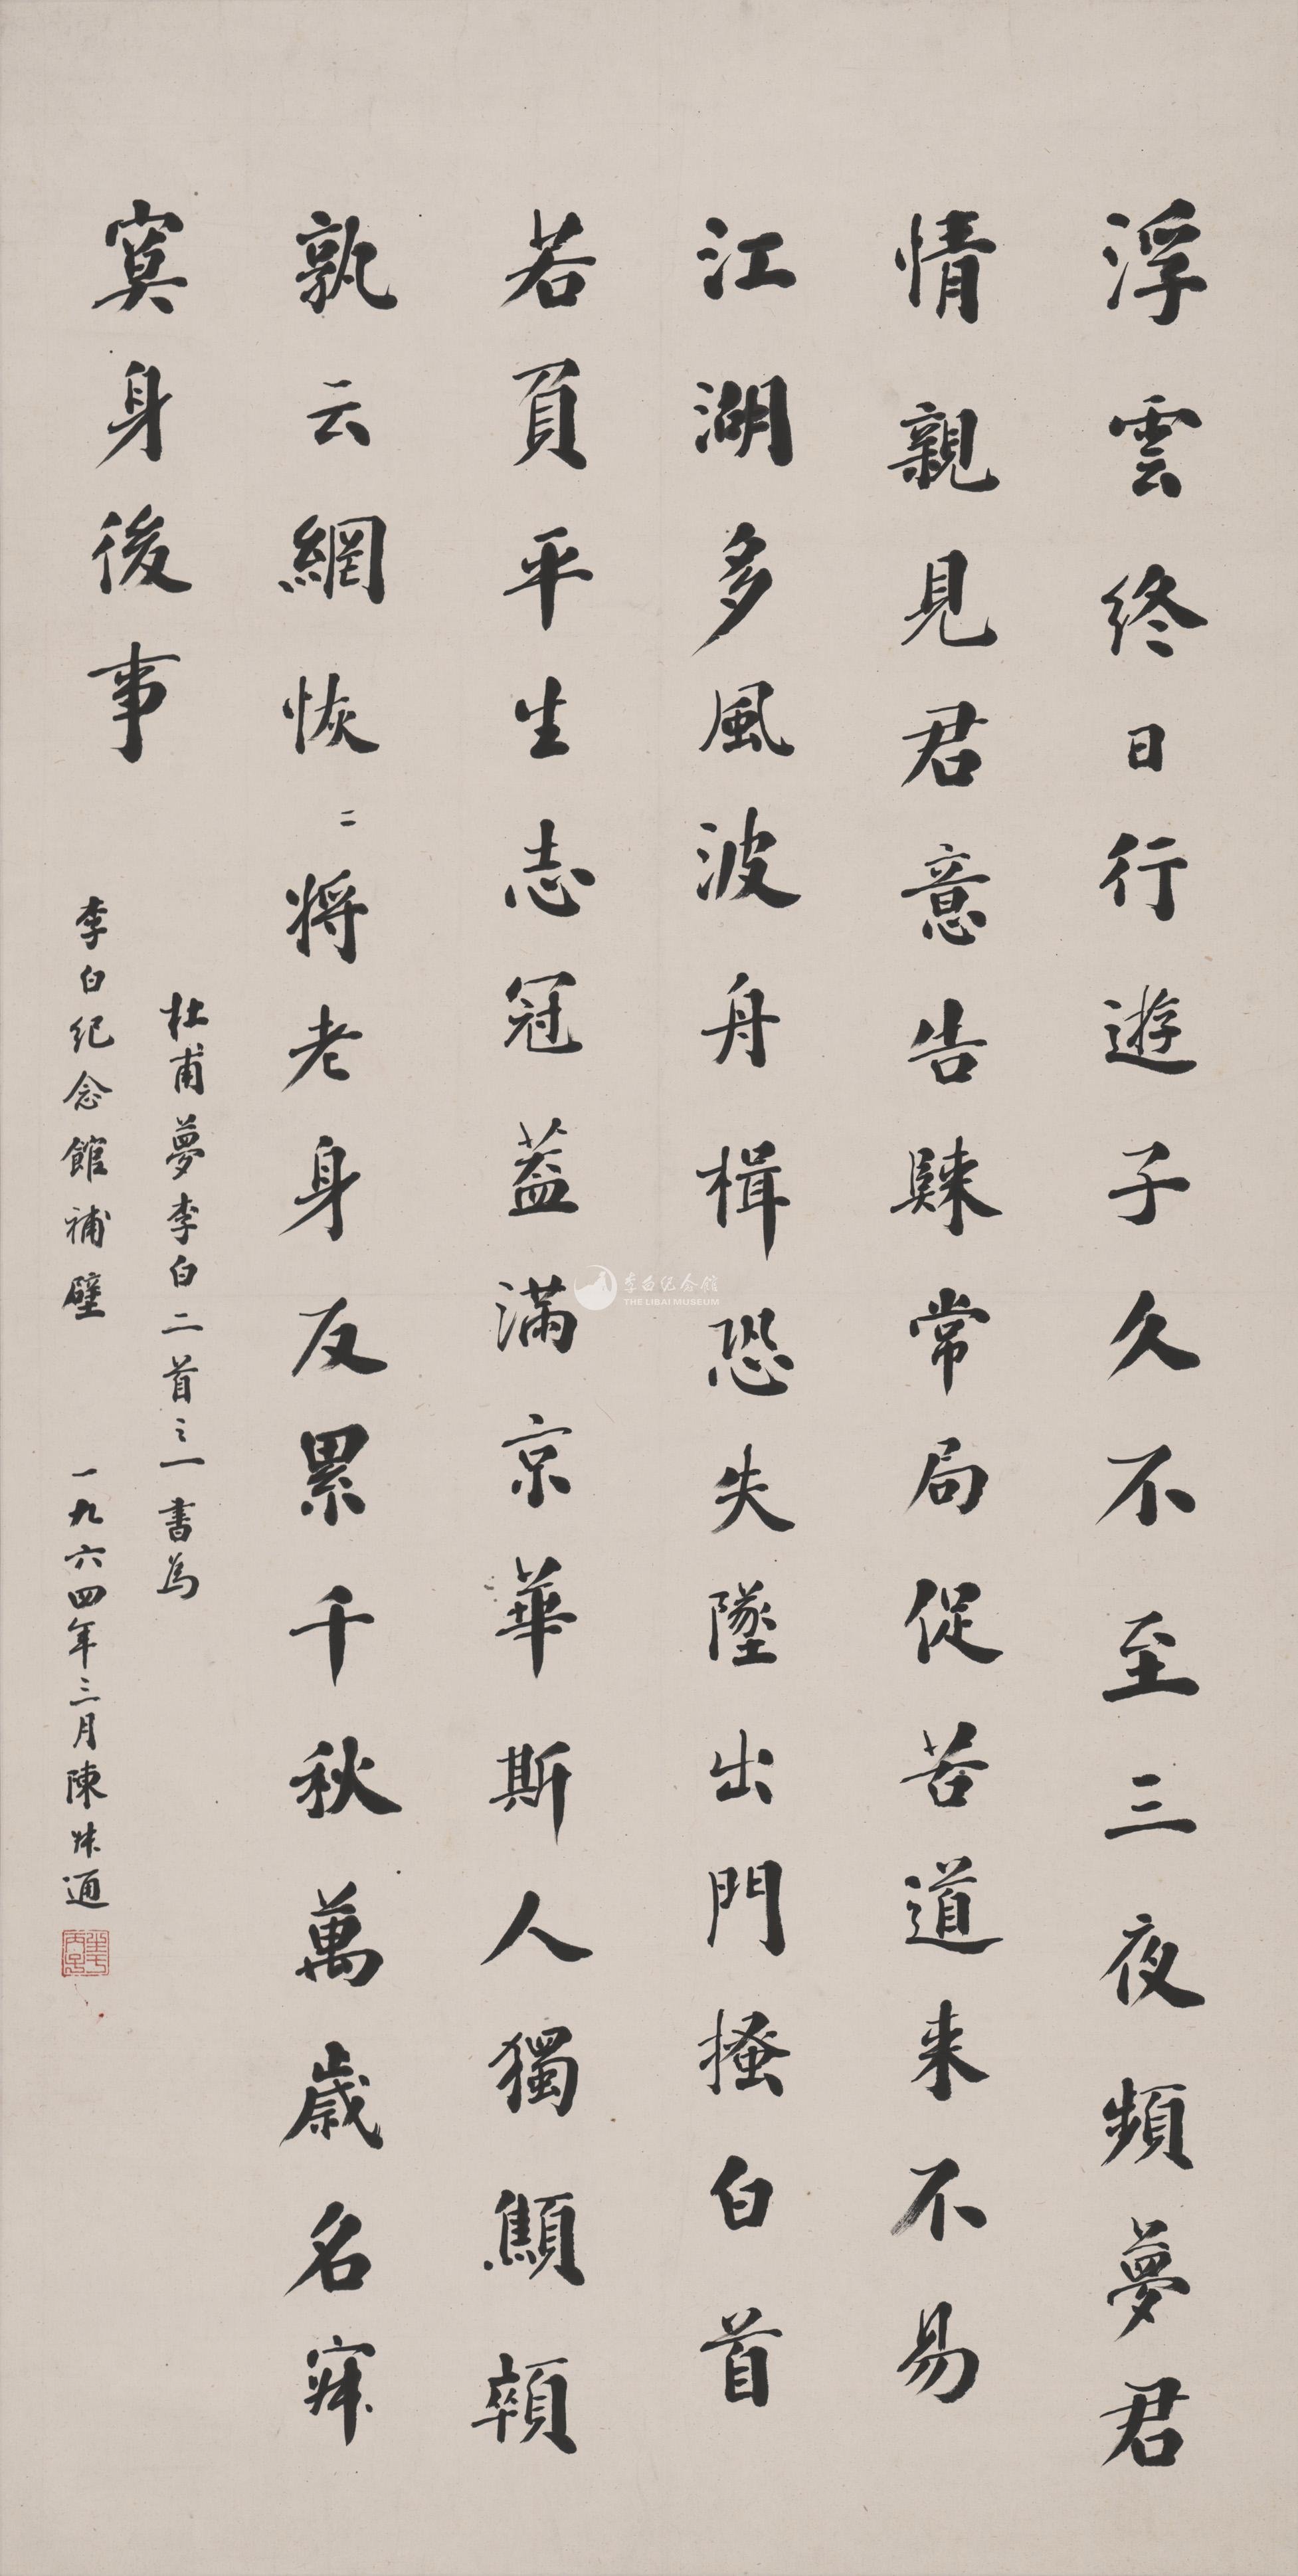 浮雲終日行遊子久不至三夜頻夢君
情親見君意告歸常局促苦道来不易
江湖多風波舟楫恐失墜出門搔白首
若負平生志冠蓋滿京華斯人獨顦顇
孰云網恢〻将老身反累千秋萬歲名寂
寞身後事
杜甫夢李白二首之一書為
李白纪念館補壁 一九六四年三月陳叔通
李白纪念馆
THE LIBAI MUSEUM